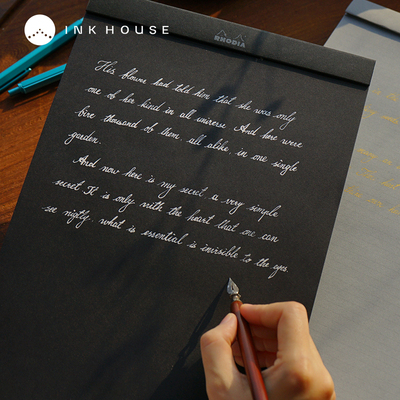 INK HOUSE
RHODIA
His flower had told him that she was only
one of her kind in all universe. And here were
five thousand of them, all alike, in one single
garden.
And now here is my secret, a very simple
secret. It is only with the heart that one can
see rightly. what is essential is invisible to the eyes.